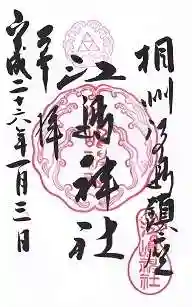 相州江島鎮座
江島神社
奉拝
平成二十六年一月三日